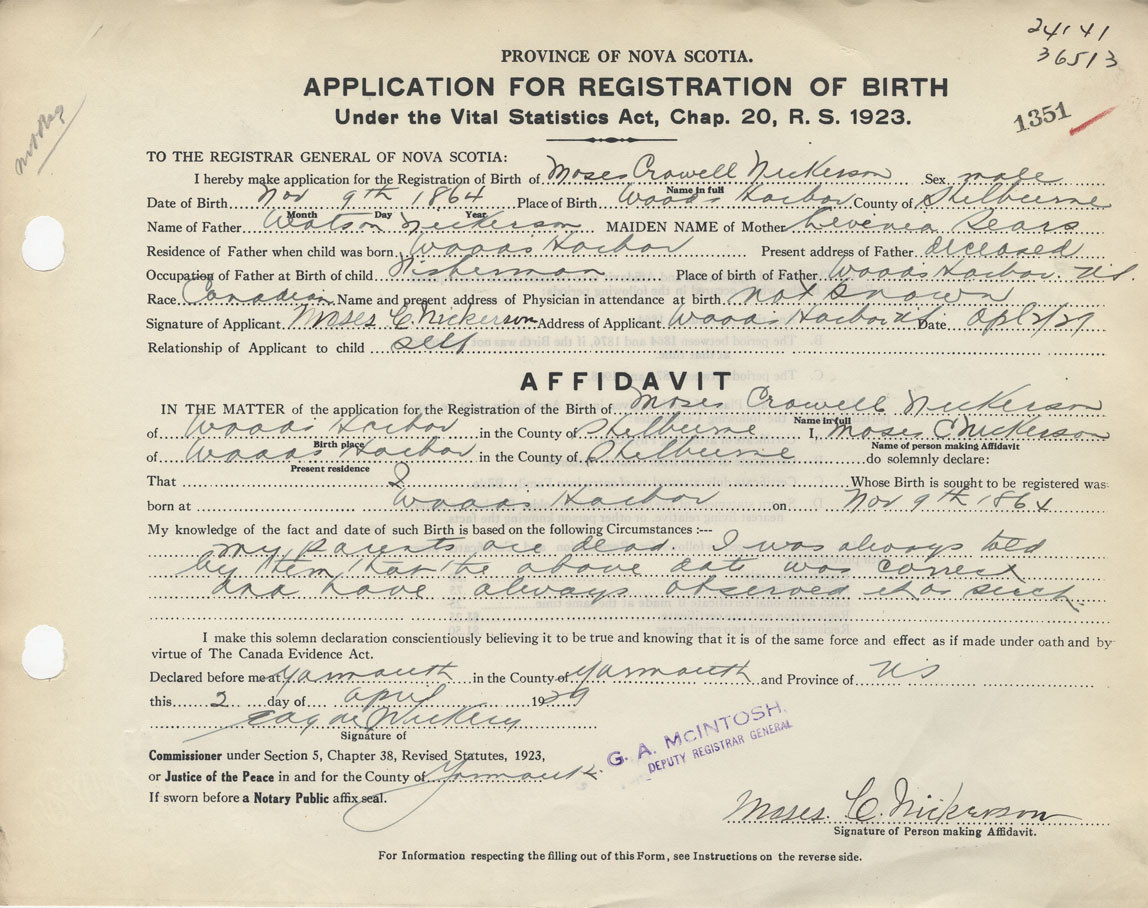 24141
36513
PROVINCE OF NOVA SCOTIA.
APPLICATION FOR REGISTRATION OF BIRTH
Under the Vital Statistics Act, Chap. 20, R. S. 1923.
1351
Not Reg
TO THE REGISTRAR GENERAL OF NOVA SCOTIA:
I hereby make application for the Registration of Birth of Moses Crowell Nickerson Sex male
Name in full
Date of Birth Nov 9th 1864 Place of Birth Woods Harbor County of Shelburne
Month Day Year
Name of Father Watson Nickerson MAIDEN NAME of Mother Levenia Sears
Residence of Father when child was born Woods Harbor Present address of Father deceased
Occupation of Father at Birth of child Fisherman Place of birth of Father Woods Harbor. NS.
Race Canadian Name and present address of Physician in attendance at birth not known
Signature of Applicant Moses C. Nickerson Address of Applicant Woods Harbor NS Date Apl 2/29
Relationship of Applicant to child self
AFFIDAVIT
IN THE MATTER of the application for the Registration of the Birth of Moses Crowell Nickerson
Name in full
of Woods Harbor in the County of Shelburne I, Moses C Nickerson
Birth place Name of person making Affidavit
of Woods Harbor in the County of Shelburne do solemnly declare:
Present residence
That I Whose Birth is sought to be registered was
born at Woods Harbor on Nov 9th 1864
My knowledge of the fact and date of such Birth is based on the following Circumstances :---
My parents are dead. I was always told
by them that the above date was correct
and have always observed it as such.
I make this solemn declaration conscientiously believing it to be true and knowing that it is of the same force and effect as if made under oath and by
virtue of The Canada Evidence Act.
Declared before me at Yarmouth in the County of Yarmouth and Province of NS
this 2 day of April 1929
Signature of
Commissioner under Section 5, Chapter 38, Revised Statutes, 1923,
or Justice of the Peace in and for the County of Yarmouth
If sworn before a Notary Public affix seal.
G. A. McINTOSH.
DEPUTY REGISTRAR GENERAL
Moses C. Nickerson
Signature of Person making Affidavit.
For Information respecting the filling out of this Form, see Instructions on the reverse side.